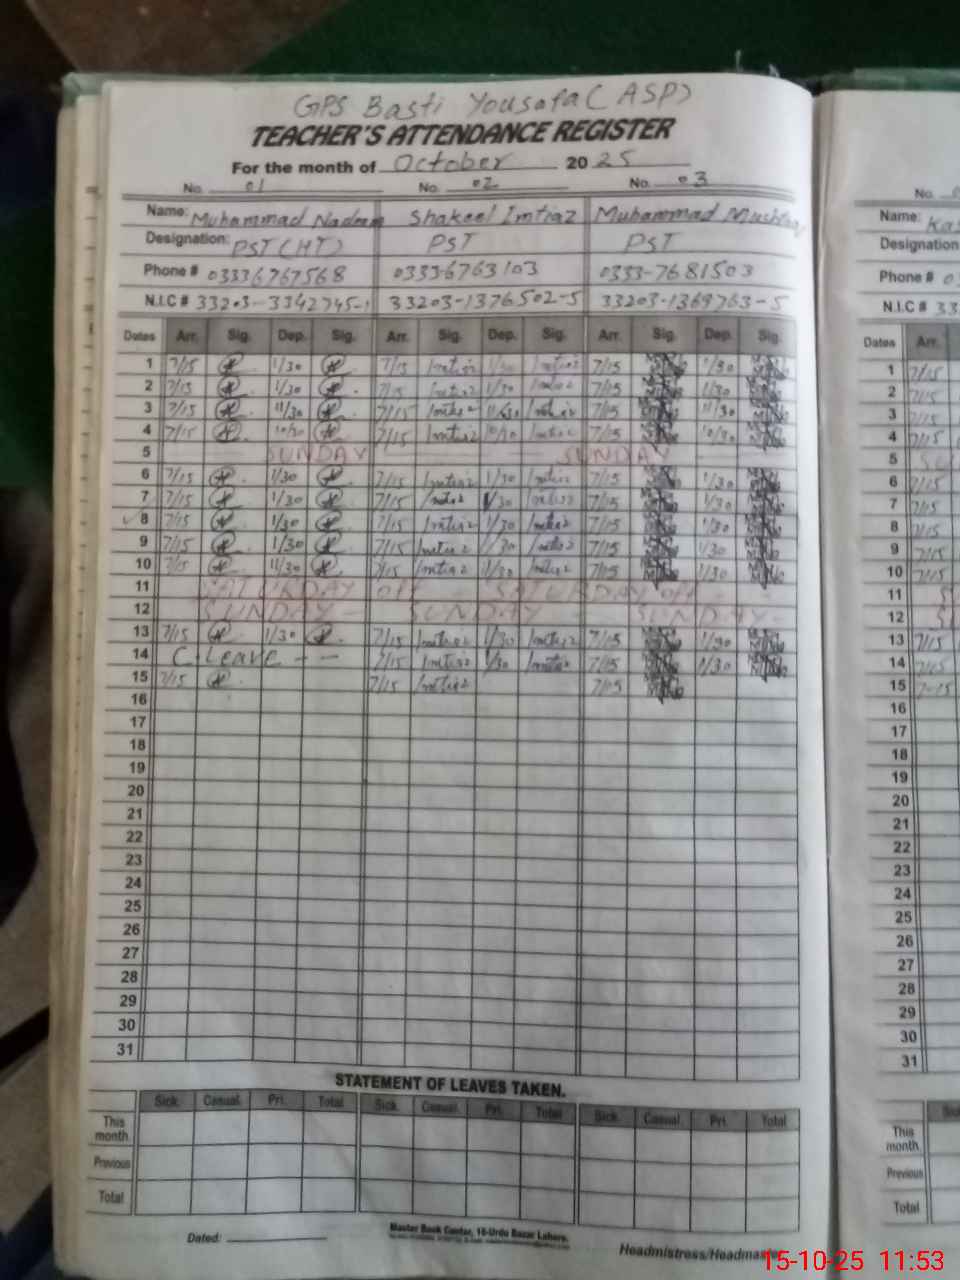 GPS Basti Yousafa (ASP)
TEACHER'S ATTENDANCE REGISTER
For the month of October 2025
No. 01 No. 02 No. 03 No.
Name: Muhammad Nadeem Shakeel Imtiaz Muhammad Name:
Designation: PST (HT) PST PST Designation
Phone # 03336767568 0333-6763103 0333-7681503 Phone #
N.I.C # 33203-3342745-1 33203-1376502-5 33203-1369763-5 N.I.C # 33
Dates Arr. Sig. Dep. Sig. Arr. Sig. Dep. Sig. Arr. Sig. Dep. Sig. Dates Arr.
1 7/15 1/30 7/15 Imtiaz 1/30 Imtiaz 7/15 1/30 1 7/15
2 7/15 1/30 7/15 Imtiaz 1/30 Imtiaz 7/15 1/30 2 7/15
3 7/15 11/30 7/15 Imtiaz 11/30 Imtiaz 7/15 11/30 3 7/15
4 7/15 10/30 7/15 Imtiaz 10/30 Imtiaz 7/15 10/30 4 7/15
5 SUNDAY SUNDAY 5
6 7/15 1/30 7/15 Imtiaz 1/30 Imtiaz 7/15 1/30 6 7/15
7 7/15 1/30 7/15 Imtiaz 1/30 Imtiaz 7/15 1/30 7 7/15
8 7/15 1/30 7/15 Imtiaz 1/30 Imtiaz 7/15 1/30 8 7/15
9 7/15 1/30 7/15 Imtiaz 1/30 Imtiaz 7/15 1/30 9 7/15
10 7/15 11/30 7/15 Imtiaz 11/30 Imtiaz 7/15 11/30 10 7/15
11 SATURDAY off - SATURDAY off - 11
12 SUNDAY - SUNDAY - SUNDAY - 12
13 7/15 1/30 7/15 Imtiaz 1/30 Imtiaz 7/15 1/30 13 7/15
14 C. Leave - - 7/15 Imtiaz 1/30 Imtiaz 7/15 1/30 14 7/15
15 7/15 7/15 Imtiaz 7/15 15 7-15
16 16
17 17
18 18
19 19
20 20
21 21
22 22
23 23
24 24
25 25
26 26
27 27
28 28
29 29
30 30
31 31
STATEMENT OF LEAVES TAKEN.
Sick. Casual. Pri. Total Sick. Casual. Pri. Total Sick. Casual. Pri. Total
This month. This month
Previous Previous
Total Total
Dated: Master Book Center, 16-Urdu Bazar Lahore.
Headmistress/Headmaster
15-10-25 11:53